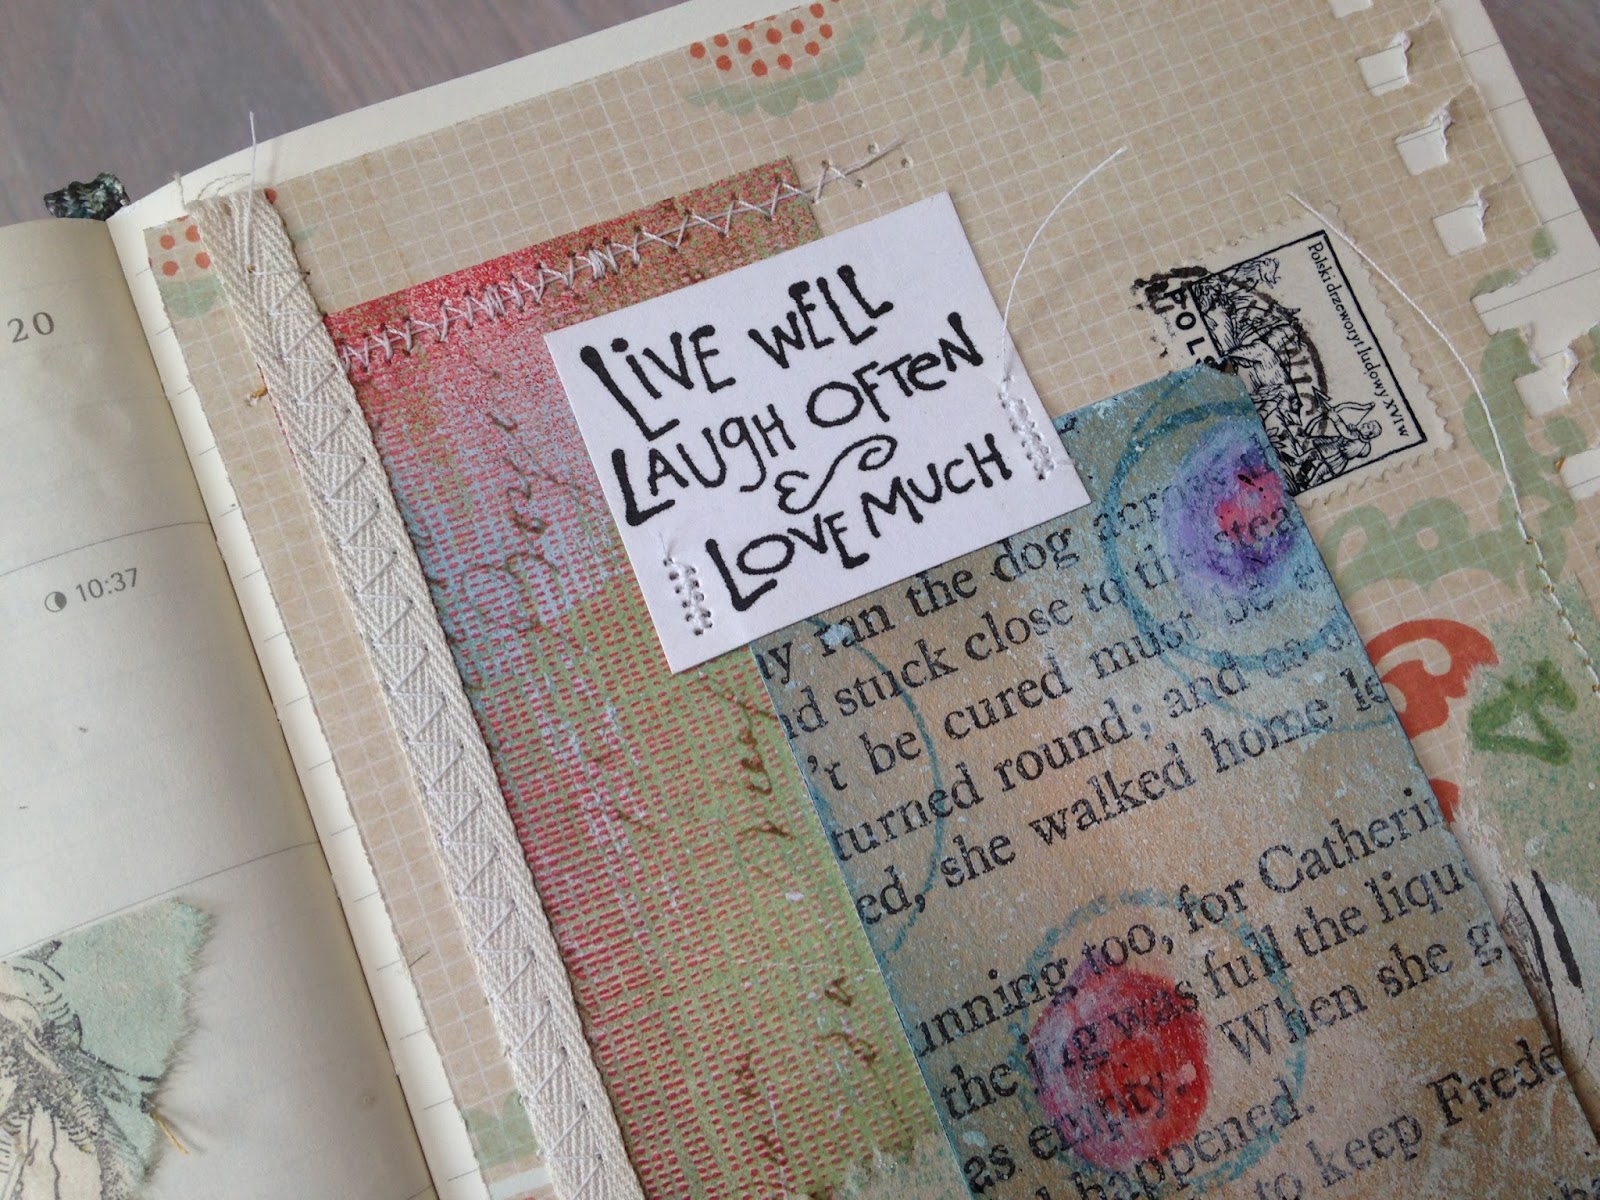 20
10:37
LIVE WELL
LAUGH OFTEN
&
LOVE MUCH
POLS
Polskidrzeworytludowy XVIw
ran the dog
stuck close to
't be cured must be
turned round; and as
ed, she walked home
unning too, for Catherin
the jug was full the liqu
as empty. When she g
happened.
to keep Frede